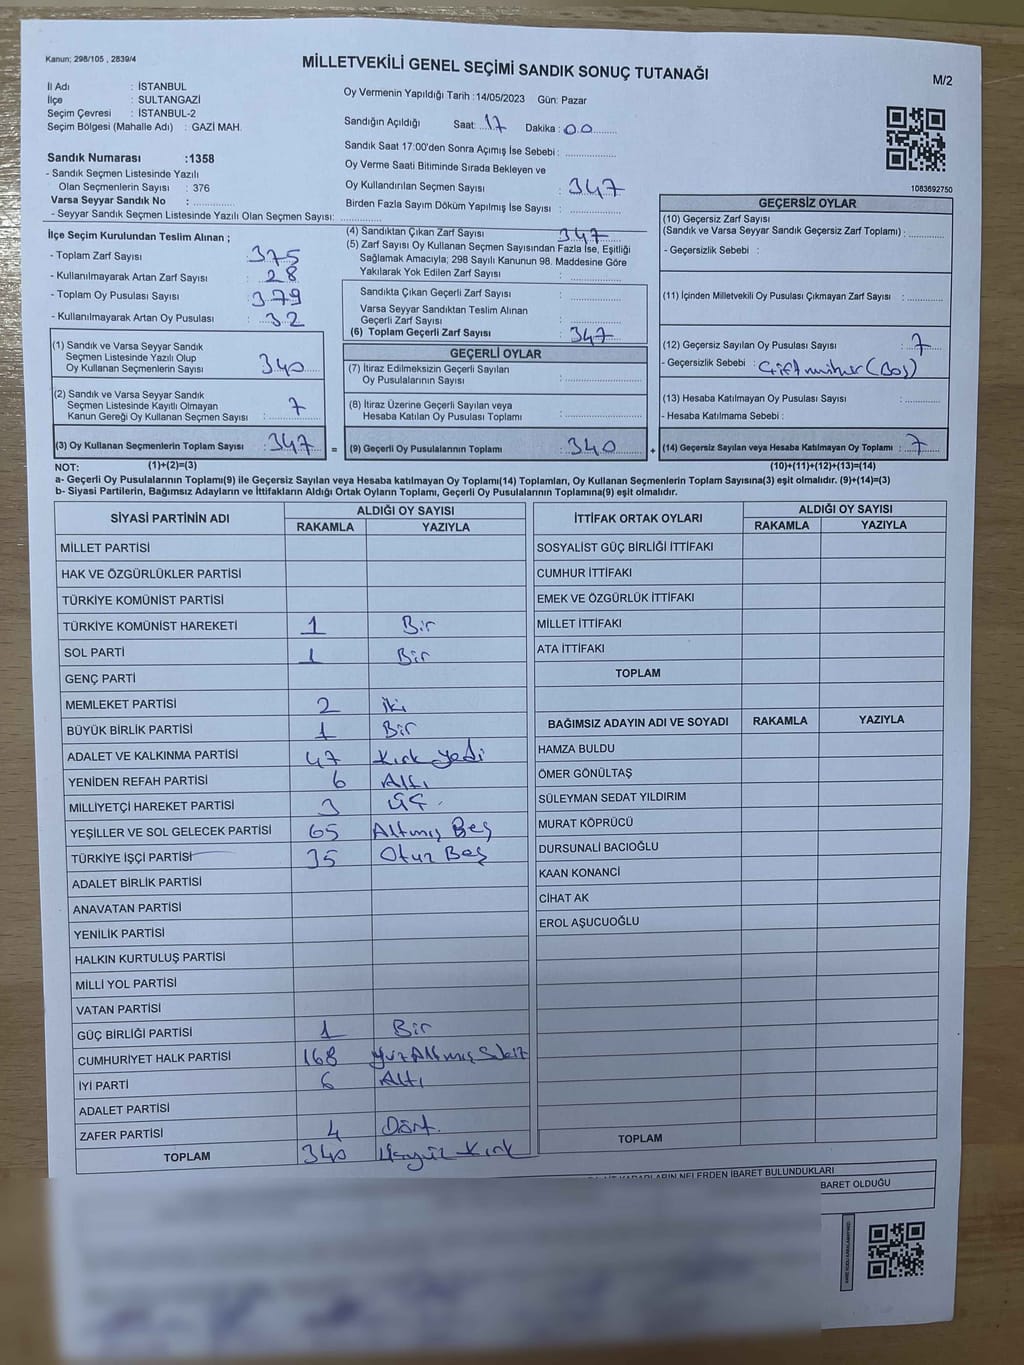 Kanun; 298/105 , 2839/4
MİLLETVEKİLİ GENEL SEÇİMİ SANDIK SONUÇ TUTANAĞI
M/2
İl Adı : İSTANBUL
İlçe : SULTANGAZİ
Seçim Çevresi : İSTANBUL-2
Seçim Bölgesi (Mahalle Adı) : GAZİ MAH.
Oy Vermenin Yapıldığı Tarih : 14/05/2023 Gün: Pazar
Sandığın Açıldığı Saat: 17 Dakika : 00
Sandık Saat 17:00'den Sonra Açımış İse Sebebi :
Oy Verme Saati Bitiminde Sırada Bekleyen ve
Oy Kullandırılan Seçmen Sayısı : 347
Birden Fazla Sayım Döküm Yapılmış İse Sayısı :
1083692750
Sandık Numarası :1358
- Sandık Seçmen Listesinde Yazılı
Olan Seçmenlerin Sayısı : 376
Varsa Seyyar Sandık No :
- Seyyar Sandık Seçmen Listesinde Yazılı Olan Seçmen Sayısı:
İlçe Seçim Kurulundan Teslim Alınan ;
- Toplam Zarf Sayısı : 375
- Kullanılmayarak Artan Zarf Sayısı : 28
- Toplam Oy Pusulası Sayısı : 379
- Kullanılmayarak Artan Oy Pusulası : 32
(1) Sandık ve Varsa Seyyar Sandık
Seçmen Listesinde Yazılı Olup
Oy Kullanan Seçmenlerin Sayısı : 340
(2) Sandık ve Varsa Seyyar Sandık
Seçmen Listesinde Kayıtlı Olmayan
Kanun Gereği Oy Kullanan Seçmen Sayısı : 7
(3) Oy Kullanan Seçmenlerin Toplam Sayısı : 347 =
(1)+(2)=(3)
(4) Sandıktan Çıkan Zarf Sayısı : 347
(5) Zarf Sayısı Oy Kullanan Seçmen Sayısından Fazla İse, Eşitliği
Sağlamak Amacıyla; 298 Sayılı Kanunun 98. Maddesine Göre
Yakılarak Yok Edilen Zarf Sayısı :
Sandıkta Çıkan Geçerli Zarf Sayısı :
Varsa Seyyar Sandıktan Teslim Alınan
Geçerli Zarf Sayısı :
(6) Toplam Geçerli Zarf Sayısı : 347
GEÇERLİ OYLAR
(7) İtiraz Edilmeksizin Geçerli Sayılan
Oy Pusulalarının Sayısı :
(8) İtiraz Üzerine Geçerli Sayılan veya
Hesaba Katılan Oy Pusulası Toplamı :
(9) Geçerli Oy Pusulalarının Toplamı : 340 +
GEÇERSİZ OYLAR
(10) Geçersiz Zarf Sayısı
(Sandık ve Varsa Seyyar Sandık Geçersiz Zarf Toplamı) :
- Geçersizlik Sebebi :
(11) İçinden Milletvekili Oy Pusulası Çıkmayan Zarf Sayısı :
(12) Geçersiz Sayılan Oy Pusulası Sayısı : 7
- Geçersizlik Sebebi : Çift mühür (Boş)
(13) Hesaba Katılmayan Oy Pusulası Sayısı :
- Hesaba Katılmama Sebebi :
(14) Geçersiz Sayılan veya Hesaba Katılmayan Oy Toplamı : 7
(10)+(11)+(12)+(13)=(14)
NOT:
a- Geçerli Oy Pusulalarının Toplamı(9) ile Geçersiz Sayılan veya Hesaba katılmayan Oy Toplamı(14) Toplamları, Oy Kullanan Seçmenlerin Toplam Sayısına(3) eşit olmalıdır. (9)+(14)=(3)
b- Siyasi Partilerin, Bağımsız Adayların ve İttifakların Aldığı Ortak Oyların Toplamı, Geçerli Oy Pusulalarının Toplamına(9) eşit olmalıdır.
SİYASİ PARTİNİN ADI ALDIĞI OY SAYISI
RAKAMLA YAZIYLA
MİLLET PARTİSİ
HAK VE ÖZGÜRLÜKLER PARTİSİ
TÜRKİYE KOMÜNİST PARTİSİ
TÜRKİYE KOMÜNİST HAREKETİ 1 Bir
SOL PARTİ 1 Bir
GENÇ PARTİ
MEMLEKET PARTİSİ 2 iki
BÜYÜK BİRLİK PARTİSİ 1 Bir
ADALET VE KALKINMA PARTİSİ 47 Kırk yedi
YENİDEN REFAH PARTİSİ 6 Altı
MİLLİYETÇİ HAREKET PARTİSİ 3 Üç
YEŞİLLER VE SOL GELECEK PARTİSİ 65 Altmış Beş
TÜRKİYE İŞÇİ PARTİSİ 35 Otuz Beş
ADALET BİRLİK PARTİSİ
ANAVATAN PARTİSİ
YENİLİK PARTİSİ
HALKIN KURTULUŞ PARTİSİ
MİLLİ YOL PARTİSİ
VATAN PARTİSİ
GÜÇ BİRLİĞİ PARTİSİ 1 Bir
CUMHURİYET HALK PARTİSİ 168 Yüz Altmış Sekiz
İYİ PARTİ 6 Altı
ADALET PARTİSİ
ZAFER PARTİSİ 4 Dört
TOPLAM 340 Üçyüz Kırk
İTTİFAK ORTAK OYLARI ALDIĞI OY SAYISI
RAKAMLA YAZIYLA
SOSYALİST GÜÇ BİRLİĞİ İTTİFAKI
CUMHUR İTTİFAKI
EMEK VE ÖZGÜRLÜK İTTİFAKI
MİLLET İTTİFAKI
ATA İTTİFAKI
TOPLAM
BAĞIMSIZ ADAYIN ADI VE SOYADI RAKAMLA YAZIYLA
HAMZA BULDU
ÖMER GÖNÜLTAŞ
SÜLEYMAN SEDAT YILDIRIM
MURAT KÖPRÜCÜ
DURSUNALİ BACIOĞLU
KAAN KONANCİ
CİHAT AK
EROL AŞUCUOĞLU
TOPLAM
KARARLARIN NELERDEN İBARET BULUNDUKLARI
BARET OLDUĞU